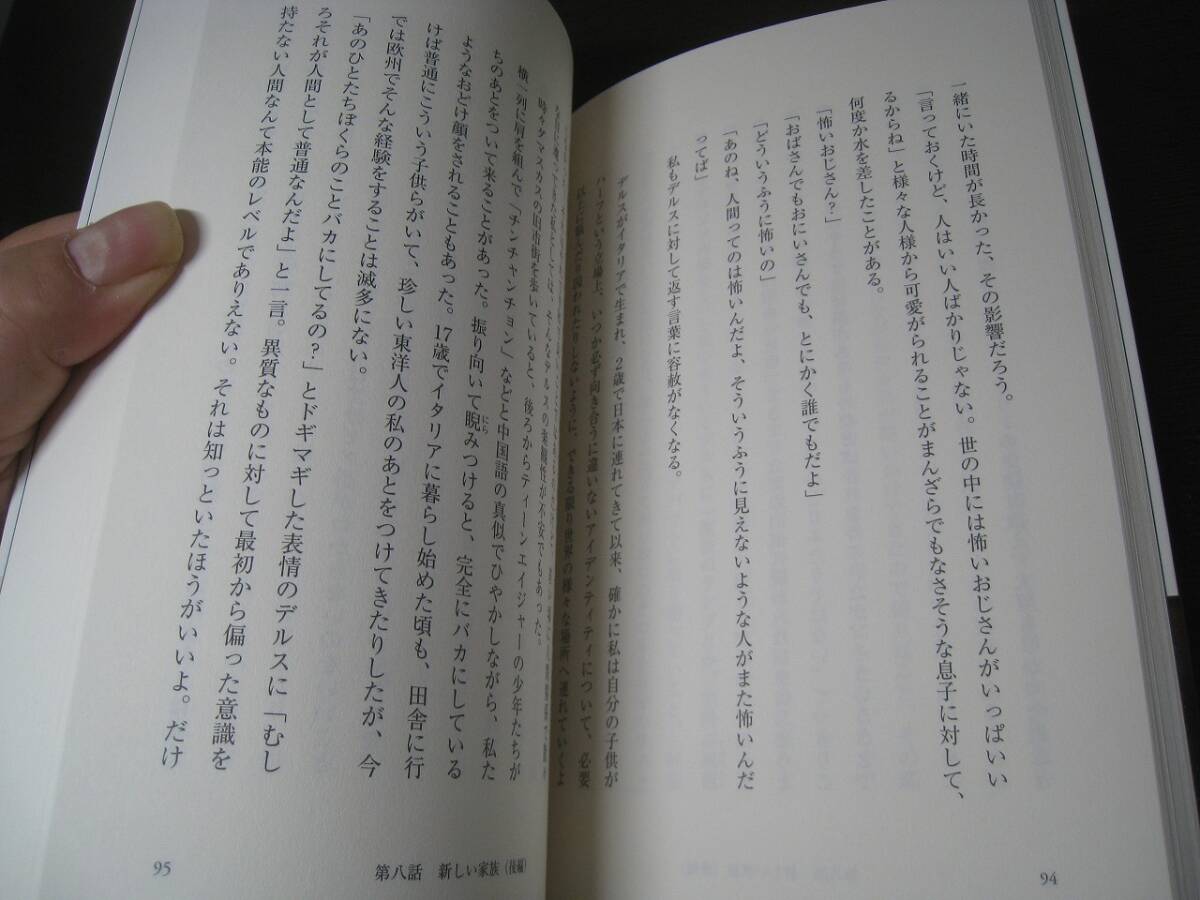 一緒にいた時間が長かった、その影響だろう。
「言っておくけど、人はいい人ばかりじゃない。世の中には怖いおじさんがいっぱいい
るからね」と様々な人様から可愛がられることがまんざらでもなさそうな息子に対して、
何度か水を差したことがある。
「怖いおじさん？」
「おばさんでもおにいさんでも、とにかく誰でもだよ」
「どういうふうに怖いの」
「あのね、人間ってのは怖いんだよ、そういうふうに見えないような人がまた怖いんだ
ってば」
私もデルスに対して返す言葉に容赦がなくなる。
デルスがイタリアで生まれ、2歳で日本に連れてきて以来、確かに私は自分の子供が
ハーフという立場上、いつか必ず向き合うに違いないアイデンティティについて、必要
以上に悩んだり囚われたりしないように、できる限り世界の様々な場所へ連れていくよ
94
しては、そんなデルスの楽観性が不安でもあった。
時々ダマスカスの旧市街を歩いていると、後ろからティーンエイジャーの少年たちが
横一列に肩を組んで「チンチャンチョン」などと中国語の真似でひやかしながら、私た
ちのあとをついて来ることがあった。振り向いて睨みつけると、完全にバカにしている
にら
ようなおどけ顔をされることもあった。17歳でイタリアに暮らし始めた頃も、田舎に行
けば普通にこういう子供らがいて、珍しい東洋人の私のあとをつけてきたりしたが、今
では欧州でそんな経験をすることは滅多にない。
「あのひとたちぼくらのことバカにしてるの？」とドギマギした表情のデルスに「むし
ろそれが人間として普通なんだよ」と一言。異質なものに対して最初から偏った意識を
持たない人間なんて本能のレベルでありえない。それは知っといたほうがいいよ。だけ
第八話　新しい家族（後編）
95